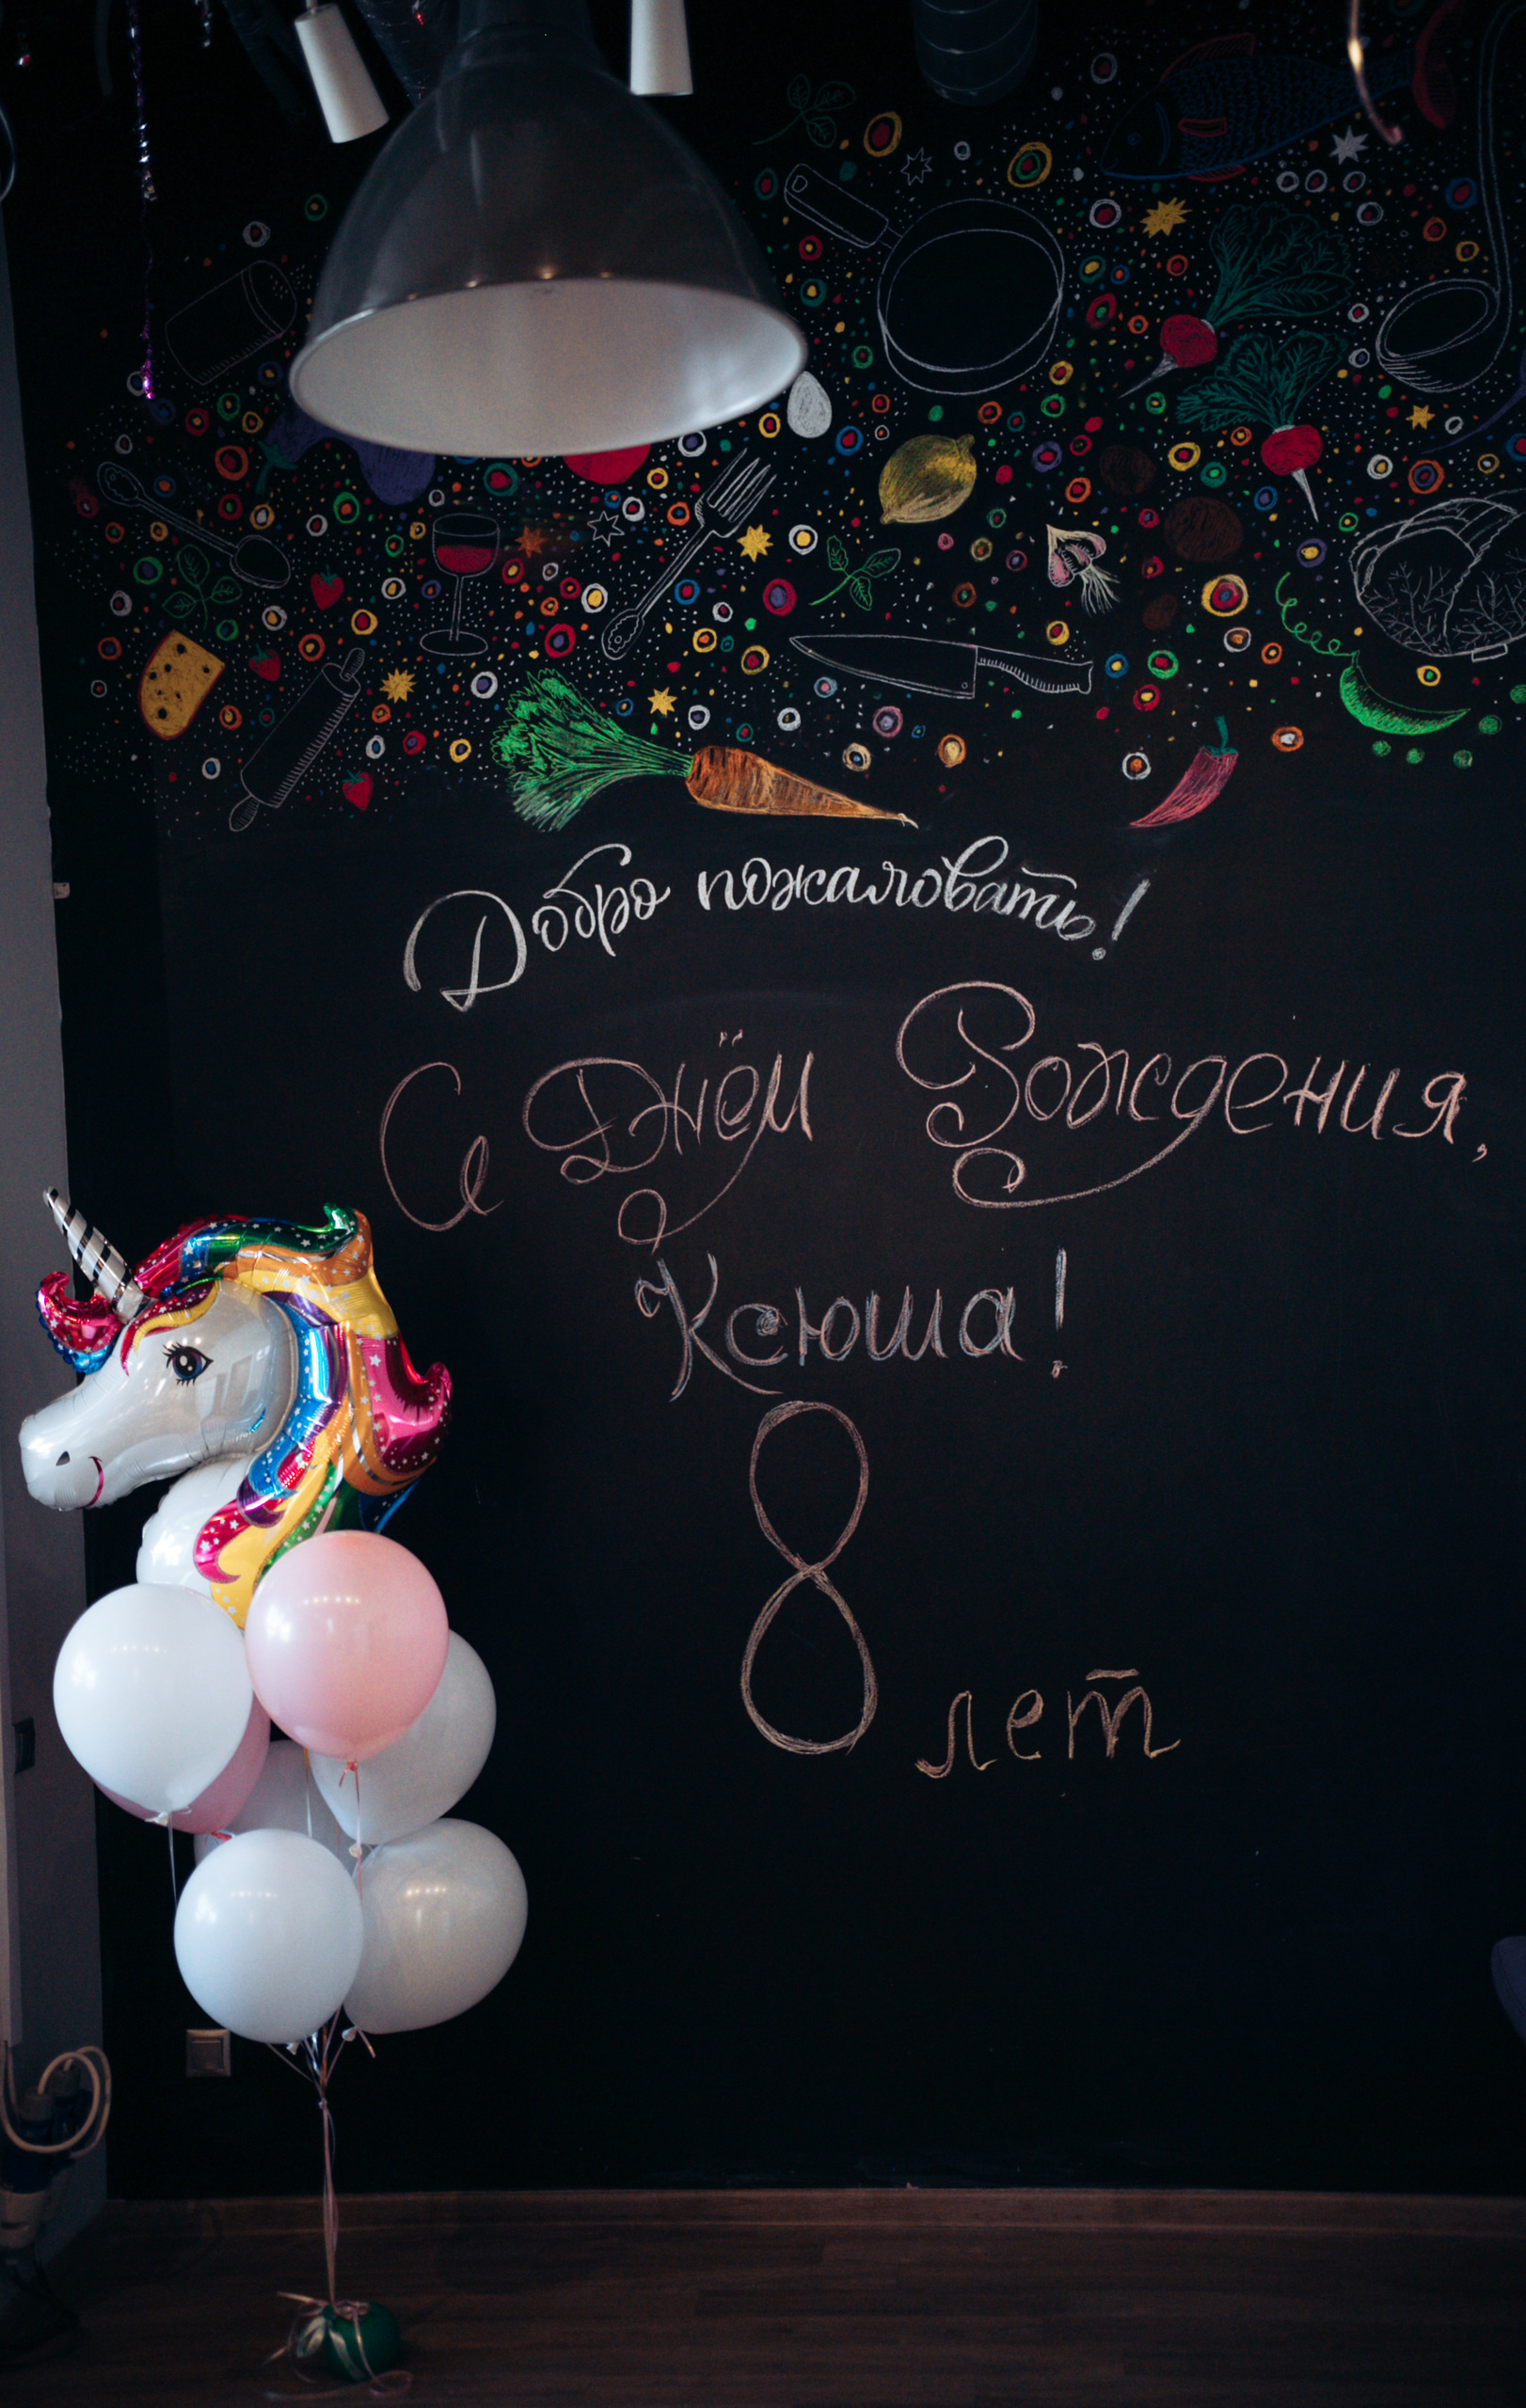 Добро пожаловать!
С Днём Рождения,
Ксюша!
8 лет